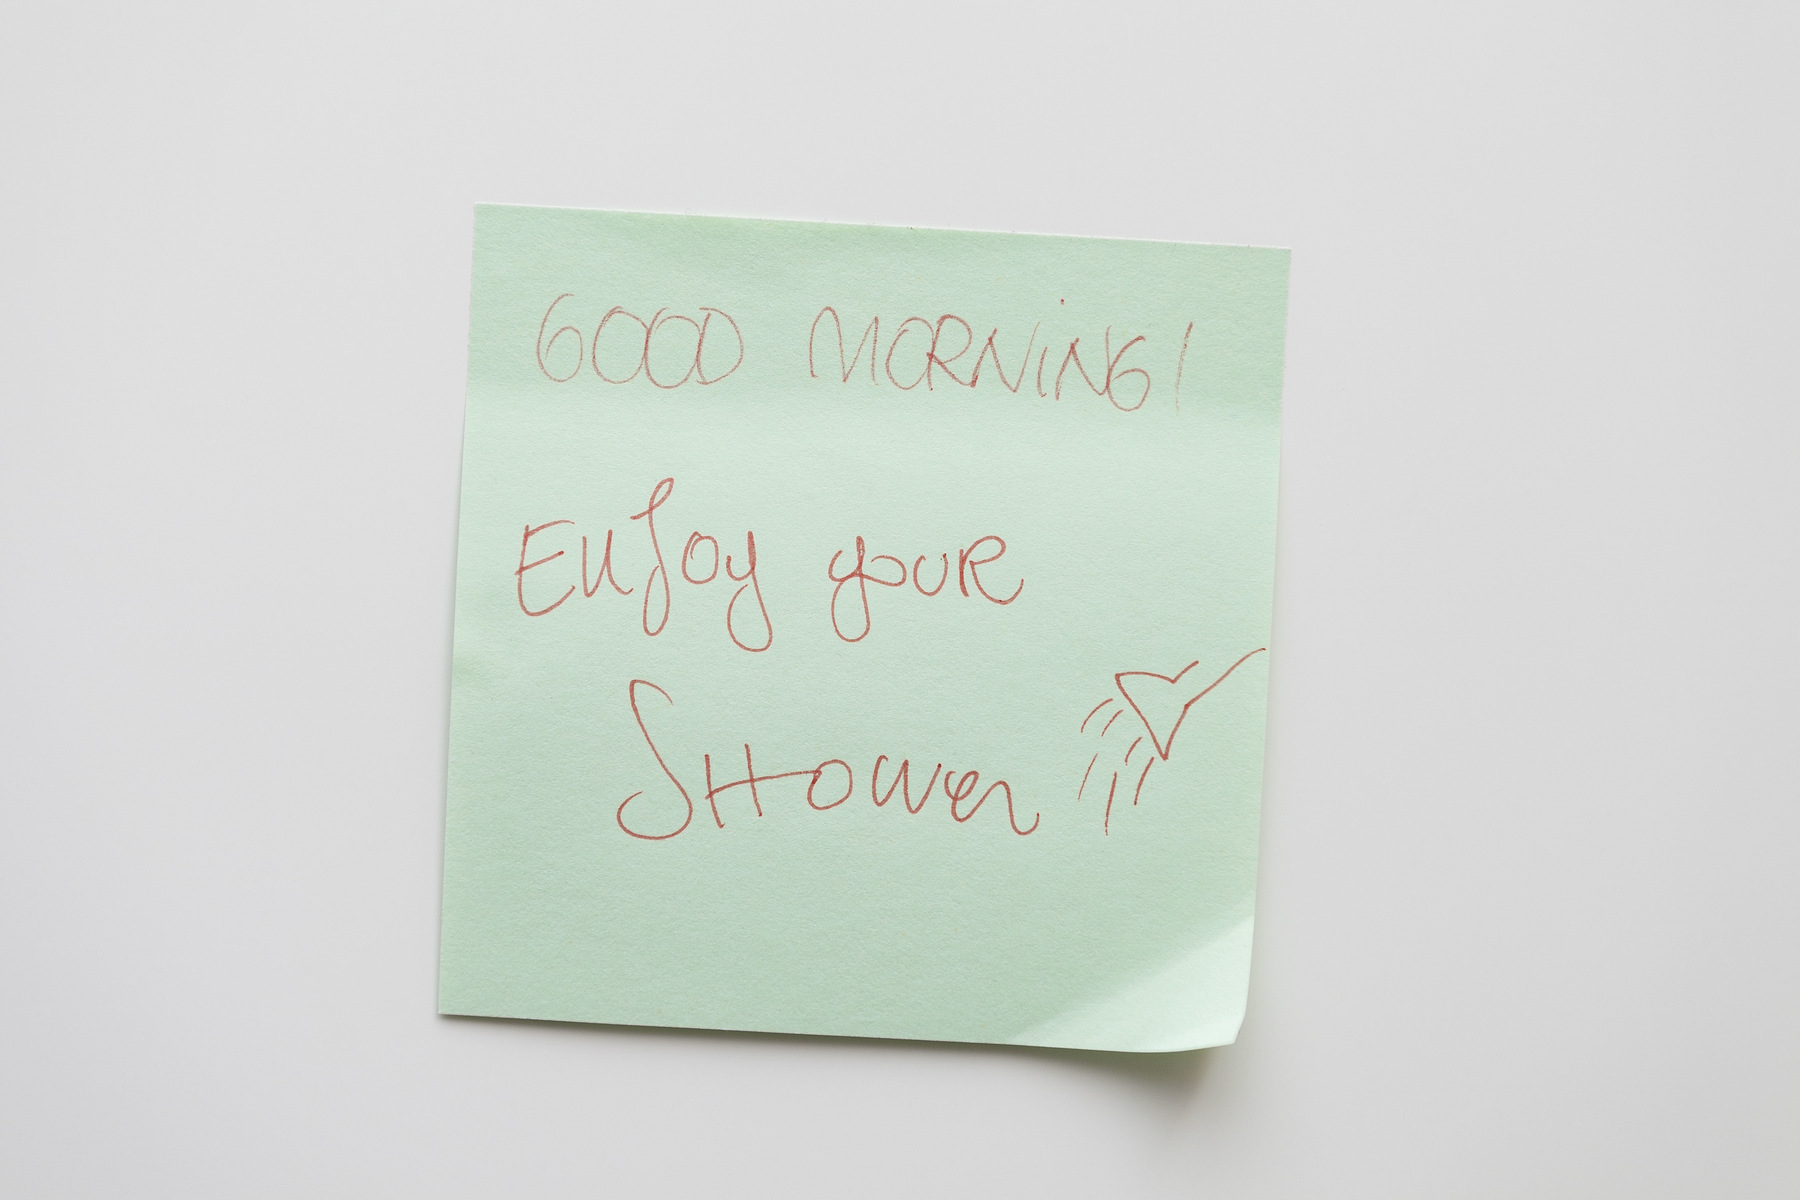 GOOD MORNiNG!
Enjoy youR
SHower